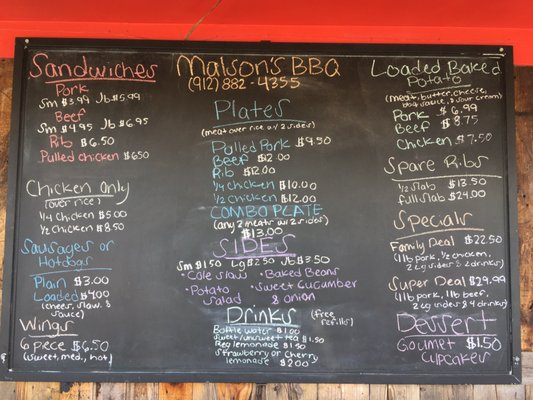 Sandwiches
Pork
Sm $3.99 Jb $5.99
Beef
Sm $4.95 Jb $6.95
Rib $6.50
Pulled chicken $6.50
Chicken Only
(over rice)
1/4 chicken $5.00
1/2 chicken $8.50
Sausages or
Hotdogs
Plain $3.00
Loaded $4.00
(cheese, slaw, &
sauce)
Wings
6 piece $6.50
(sweet, med, hot)
Malson's BBQ
(912)-882-4355
Plates
(meat over rice w/ 2 sides)
Pulled Pork $9.50
Beef $12.00
Rib $12.00
1/4 chicken $10.00
1/2 chicken $12.00
COMBO PLATE
(any 2 meats w/ 2 sides)
$13.00
SIDES
Sm $1.50 Lg $2.50 Jb $3.50
• Cole slaw • Baked Beans
• Potato Salad
• Sweet Cucumber & onion
Drinks (free refills)
Bottle water $1.00
Sweet/unsweet tea $1.50
Reg lemonade $1.50
Strawberry or Cherry
lemonade $2.00
Loaded Baked
Potato
(meat, butter, cheese,
bbq sauce, & sour cream)
Pork $6.99
Beef $8.75
Chicken $7.50
Spare Ribs
1/2 slab $13.50
full slab $24.00
Specials
Family Deal $22.50
(1lb pork, 1/2 chicken,
2 Lg sides & 2 drinks)
Super Deal $29.99
(1lb pork, 1lb beef,
2 Lg sides & 4 drinks)
Dessert
Gourmet $1.50
Cupcakes